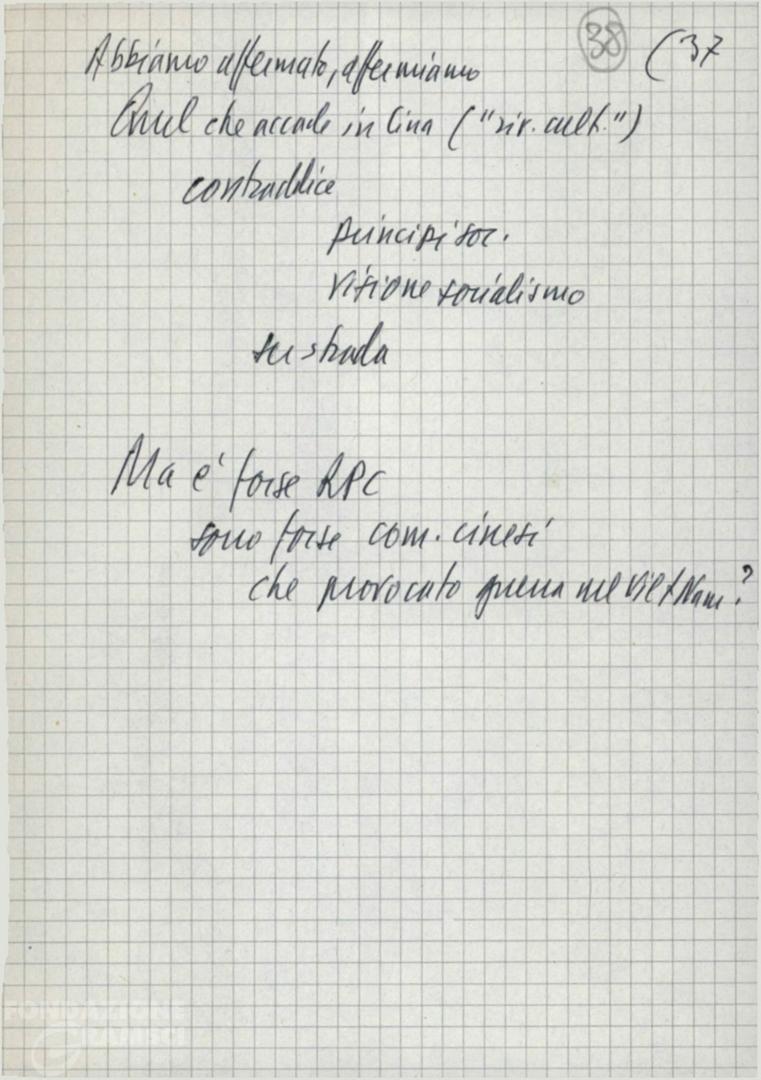 38 (37
Abbiamo affermato, affermiamo
Quel che accade in Cina ("riv. cult.")
contraddice
principi soc.
visione socialismo
su strada
Ma è forse RPC
sono forse com. cinesi
che provocato guerra nel Viet Nam?
FONDAZIONE
GRAMSCI